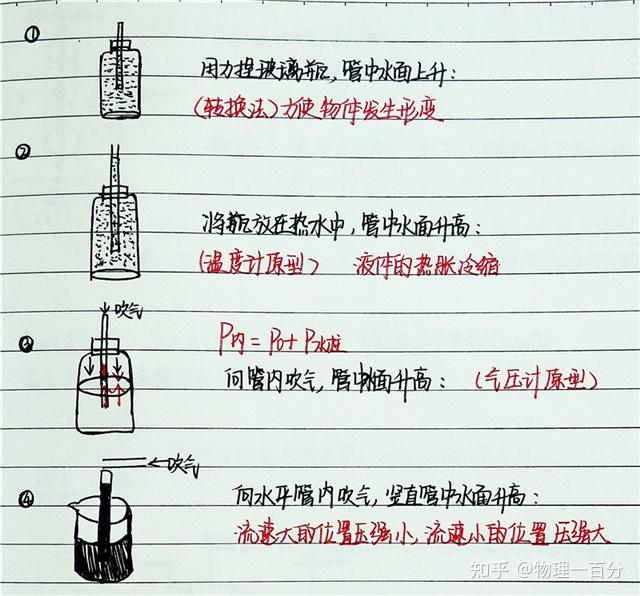 ①
用力捏玻璃瓶,管中水面上升:
(转换法)力使物体发生形变
②
将瓶放在热水中,管中水面升高:
(温度计原型) 液体的热胀冷缩
吹气
③
P内=P0+P水柱
向管内吹气,管中水面升高: (气压计原型)
吹气
④
向水平管内吹气,竖直管中水面升高:
流速大的位置压强小,流速小的位置压强大
知乎 @物理一百分